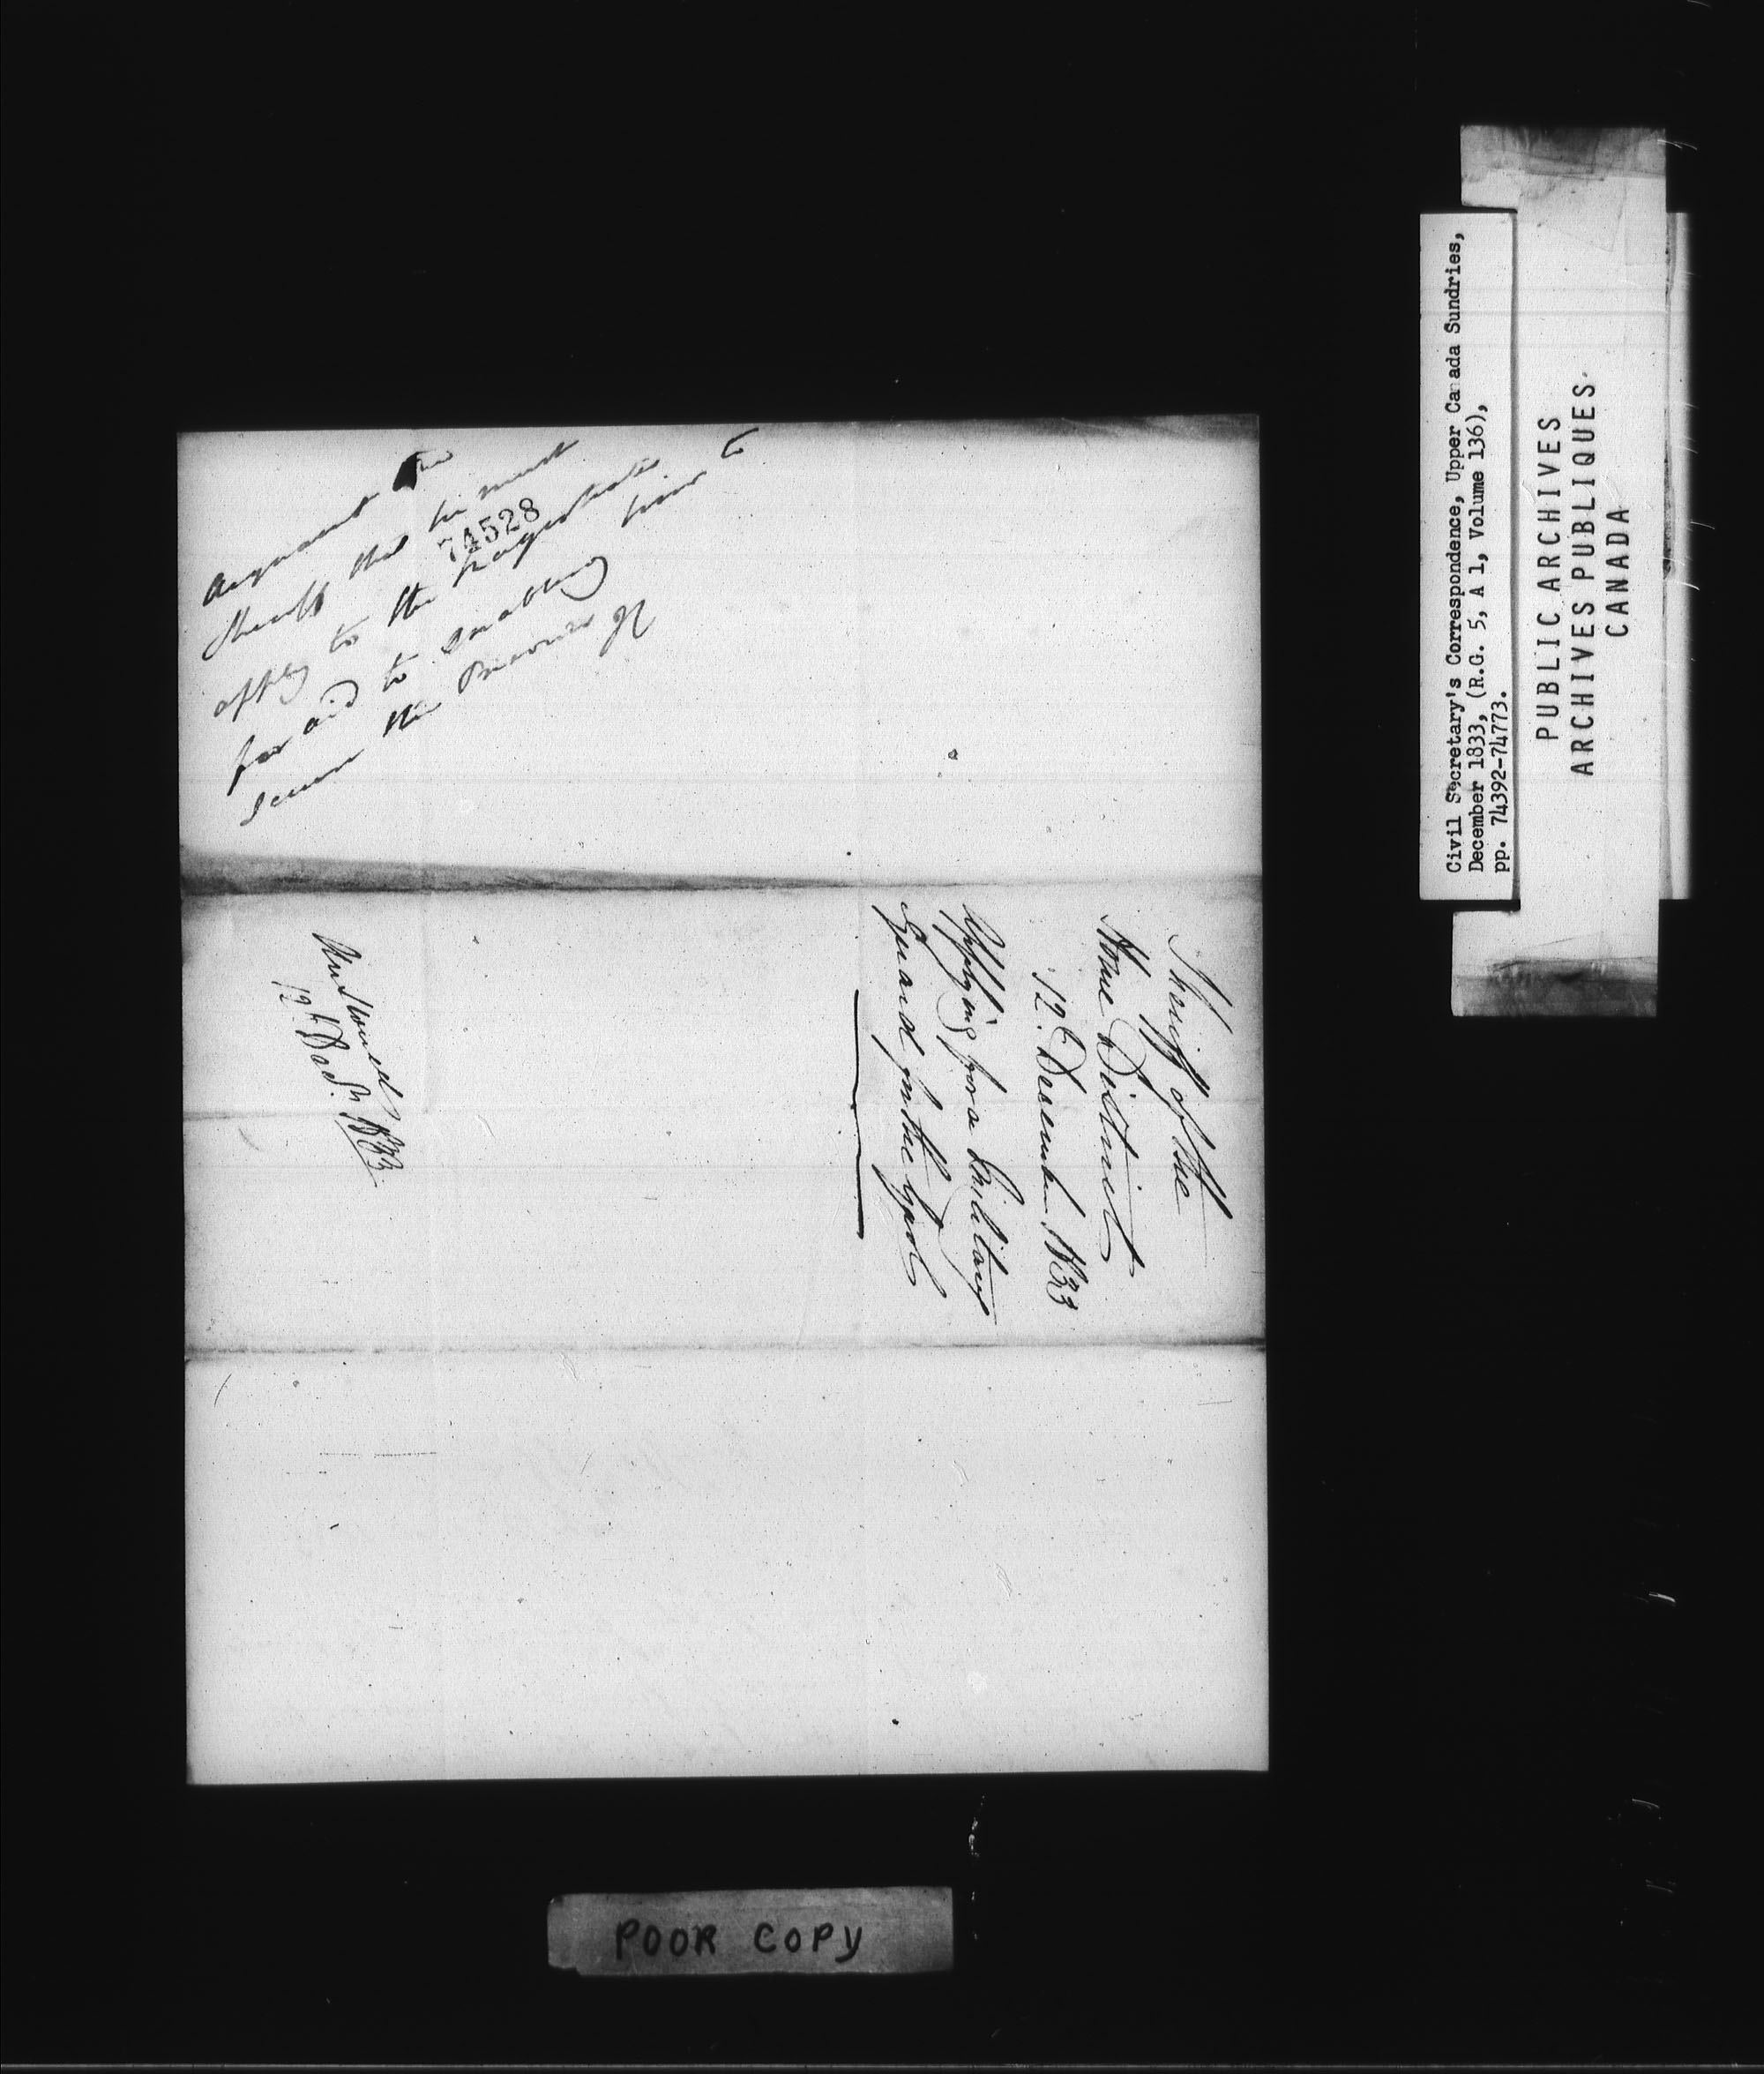 Acquaint the
Sheriff that he must
74528
apply to the Magistrates
for aid to enabling him to
secure the Prisoners
Sheriff of the
Home District
12th December 1833
Applying for a Military
Guard for the Gaol
Answered
12th Decr 1833
Civil Secretary's Correspondence, Upper Canada Sundries,
December 1833, (R.G. 5, A 1, Volume 136),
pp. 74392-74773.
PUBLIC ARCHIVES
ARCHIVES PUBLIQUES
CANADA
POOR COPY